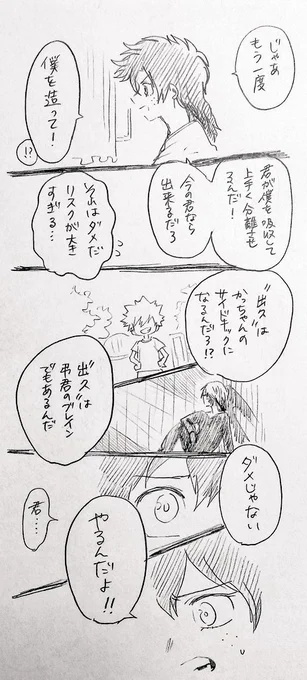 じゃあ
もう一度
僕を造って！
!?
君が僕を吸収して
上手く分離させ
るんだ！
今の君なら
出来るだろ
それはダメだ
リスクが大き
すぎる…
"出久"は
かっちゃんの
サイドキックに
なるんだろ!?
"出久"は
弔君のブレイン
でもあるんだ
ダメじゃない
やるんだよ!!
君……